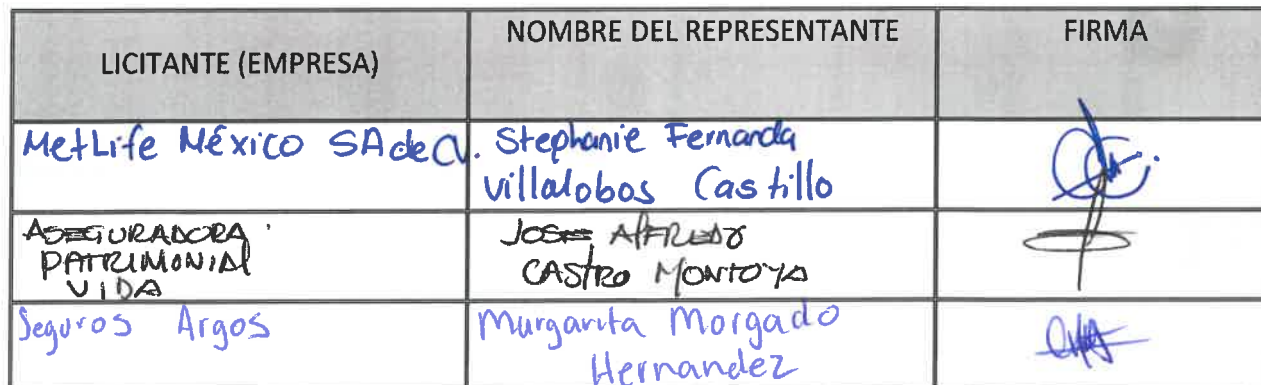 LICITANTE (EMPRESA)
NOMBRE DEL REPRESENTANTE
FIRMA
MetLife México SA de CV.
Stephanie Fernanda
Villalobos Castillo
ASEGURADORA
PATRIMONIAL
VIDA
JOSE ALFREDO
CASTRO MONTOYA
Seguros Argos
Margarita Morgado
Hernandez